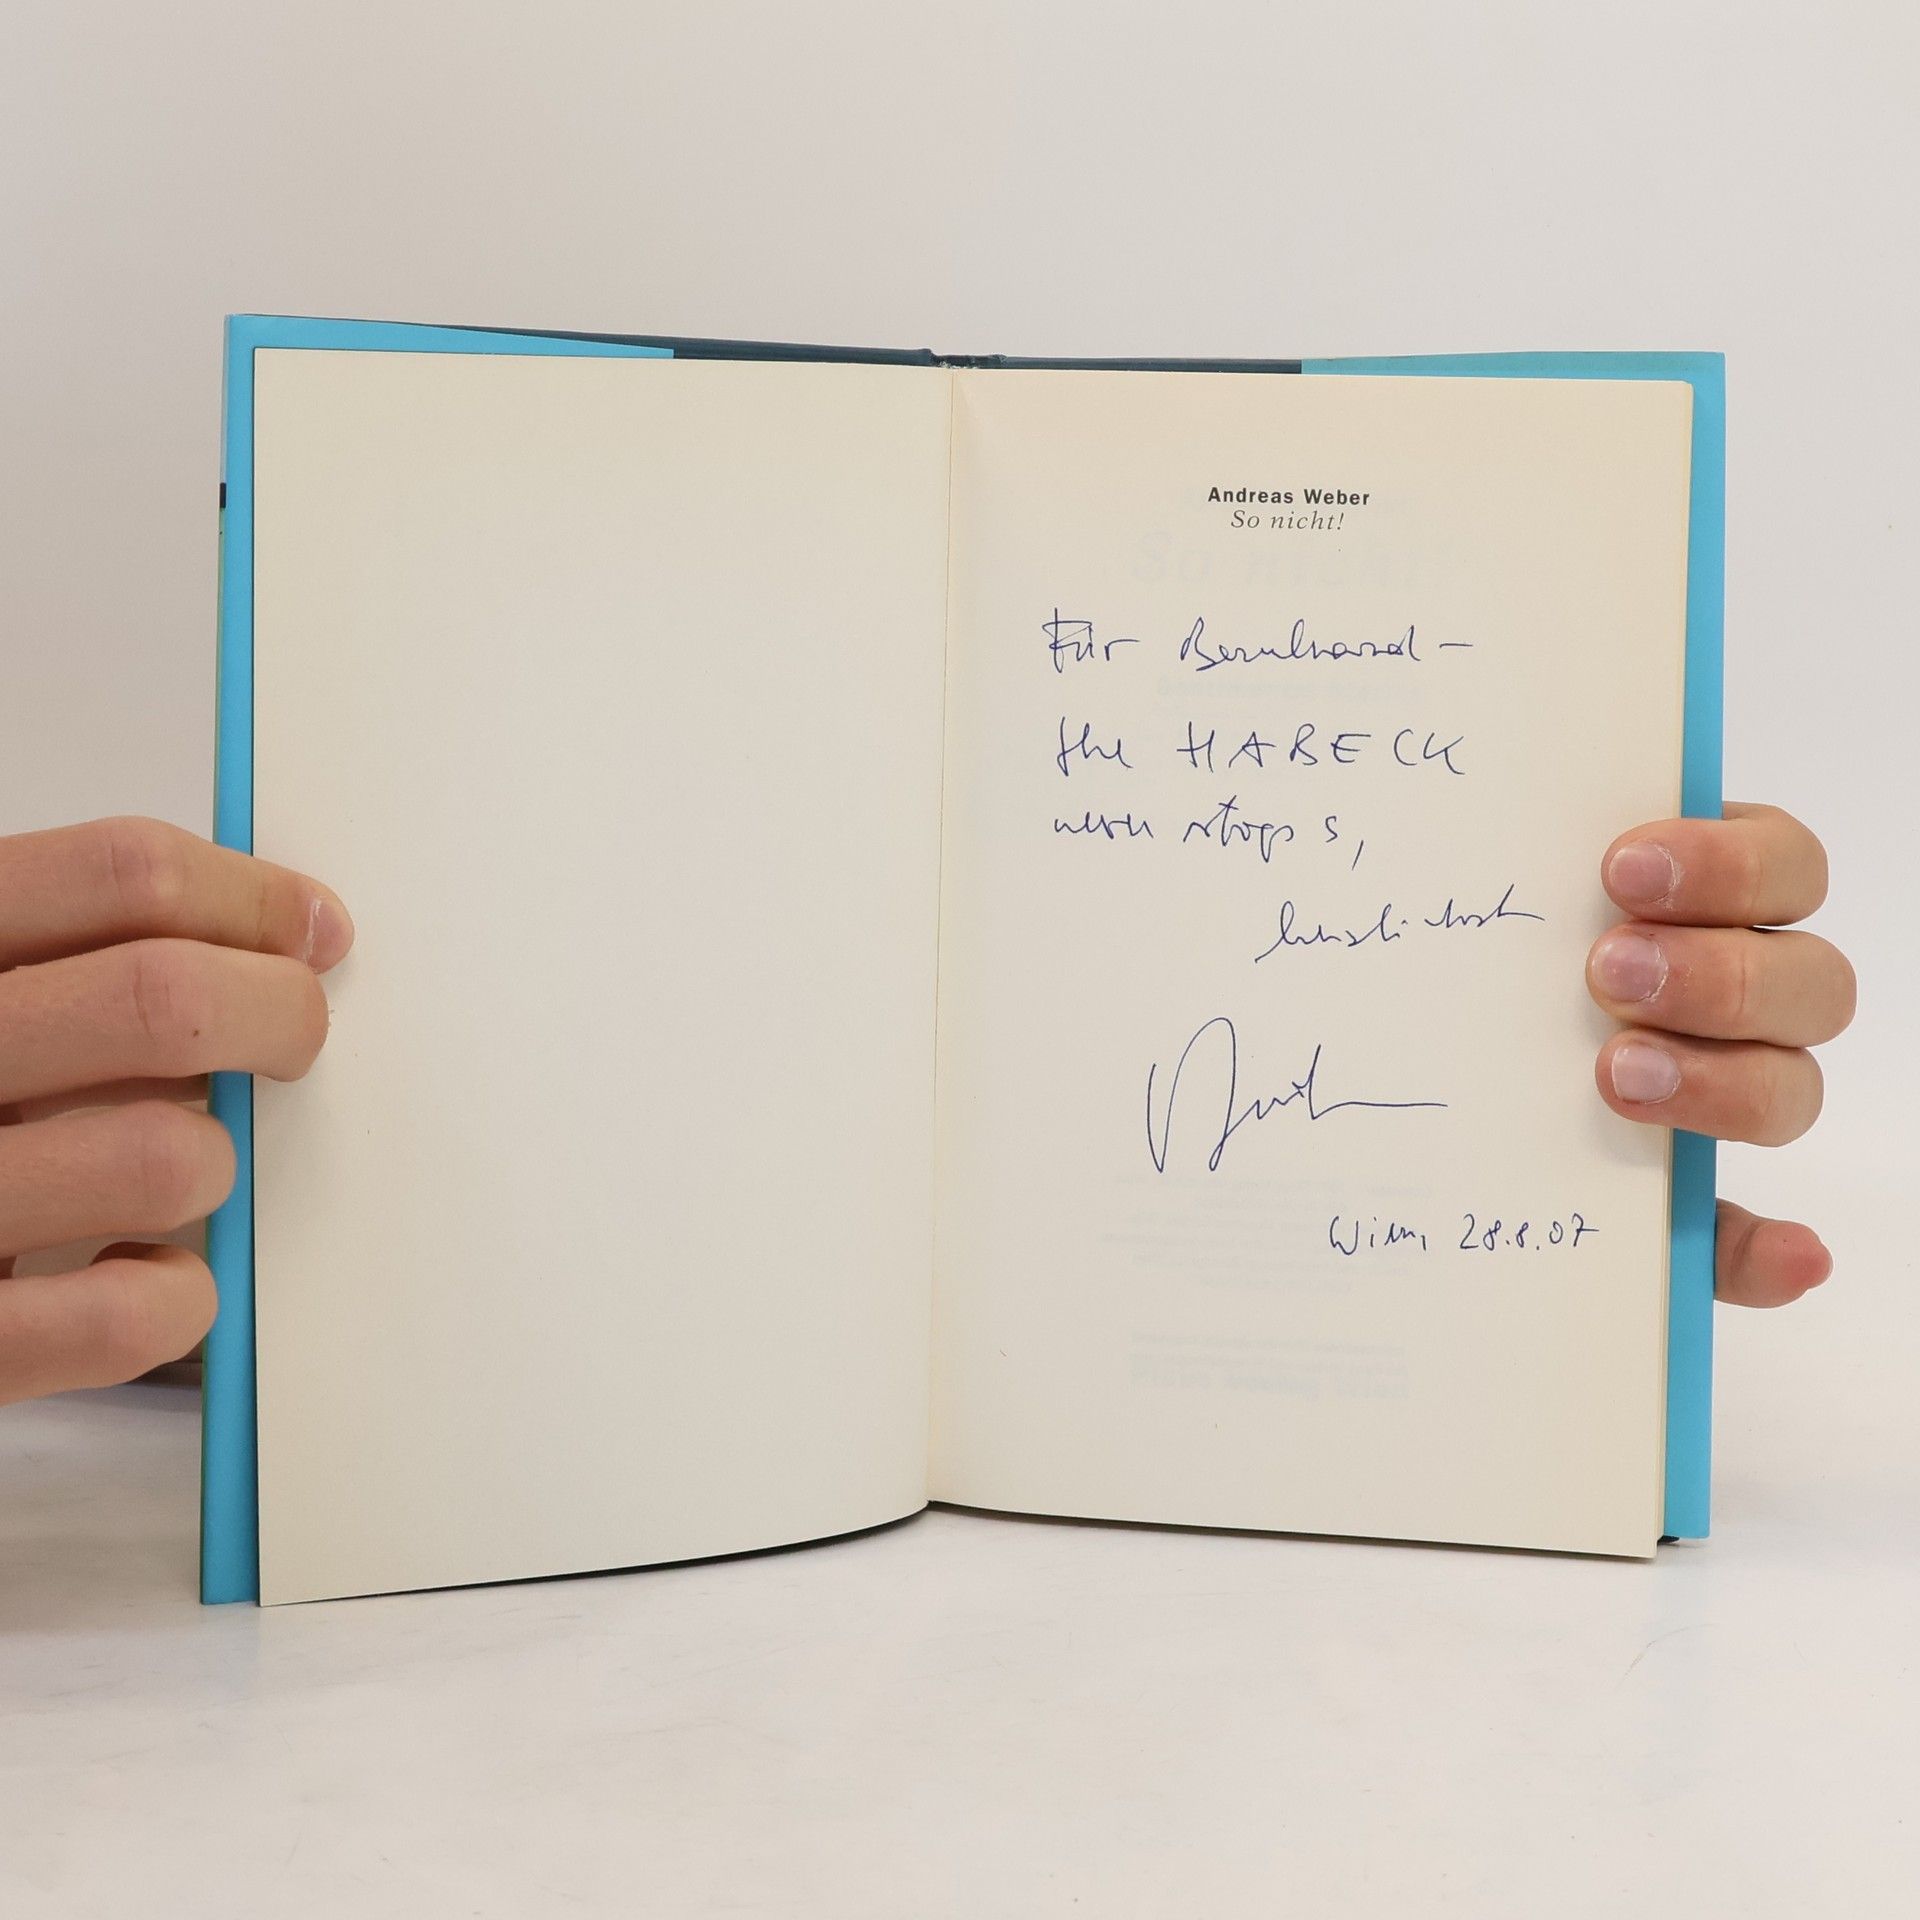 Andreas Weber
So nicht!
Für Bernhard –
the HABECK
never stops,
herzlichst
Wien, 28.8.07